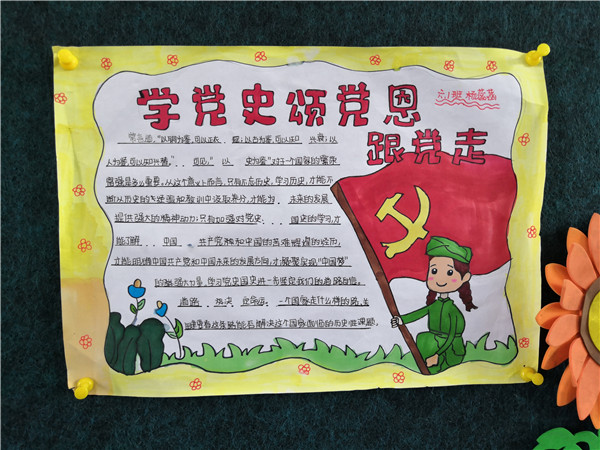 学党史颂党恩
跟党走
六1班 杨蕊菡
常言道，"以铜为鉴，可以正衣 冠；以古为鉴，可以知 兴衰；以
人为鉴，可以知兴替。" 可见，" 以 史为鉴"对于一个国家的繁荣
富强是多么重要。从这个意义上而言，只有不忘历史，学习历史，才能不
断从历史的 和教训中汲取养分，才能为 未来的发展
提供强大的精神动力；只有加强对党史、 国史的学习，才
能了解 中国 共产党和和中国的苦难辉煌的经历，
立能明确中国共产党和中国未来的发展方向，才能 实现"中国梦"
的 强大力量，学习党史国史进一步坚定我们的道路自信。
道路 决定 命运， 一个国家走什么样的路，关
键要看这条路能否解决这个国家面临的历史性课题。